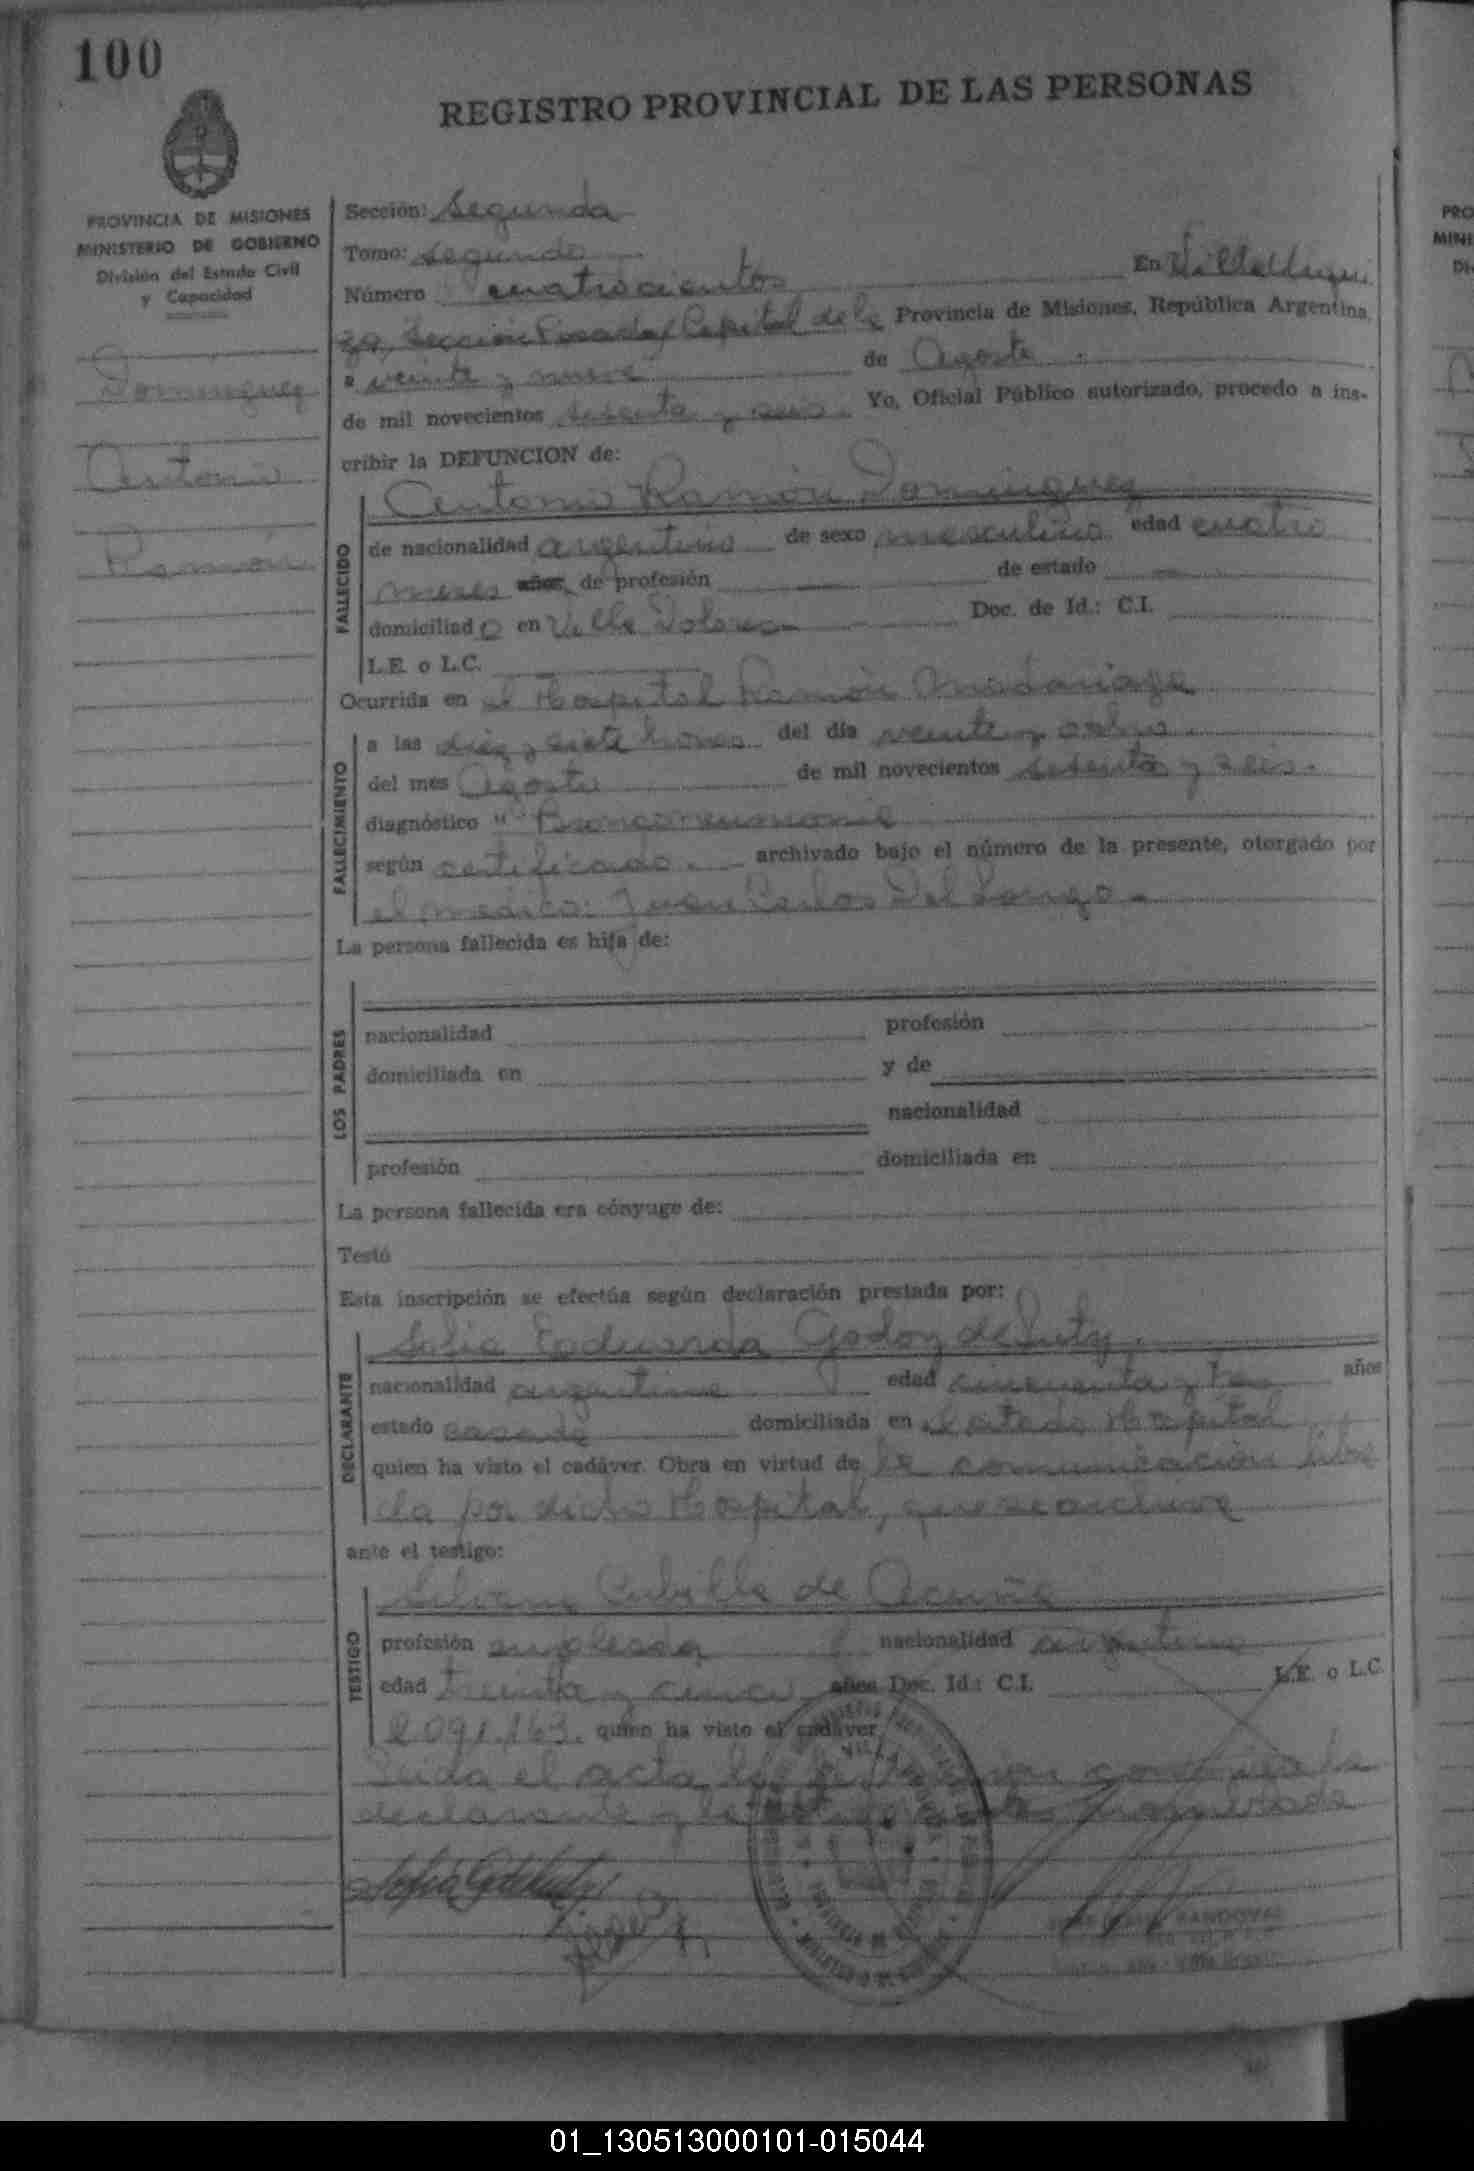 100
REGISTRO PROVINCIAL DE LAS PERSONAS
PROVINCIA DE MISIONES
MINISTERIO DE GOBIERNO
División del Estado Civil
y Capacidad
Dominguez
Antonio
Ramón
Sección: Segunda
Tomo: Segundo
Número cuatrocientos En Villa Urqui
za, Sección Posadas Capital de la Provincia de Misiones, República Argentina,
a veinte y nueve de Agosto
de mil novecientos sesenta y seis. Yo, Oficial Público autorizado, procedo a ins-
cribir la DEFUNCION de:
Antonio Ramón Dominguez
FALLECIDO
de nacionalidad argentino de sexo masculino edad cuatro
meses años, de profesión de estado
domiciliado en Villa Dolores Doc. de Id.: C.I.
L.E. o L.C.
Ocurrida en el Hospital Ramón Madariaga
FALLECIMIENTO
a las diez y siete horas del día veinte y ocho
del mes Agosto de mil novecientos sesenta y seis.
diagnóstico "Bronconeumonia
según certificado. archivado bajo el número de la presente, otorgado por
el médico: Juan Carlos Del Longo
La persona fallecida es hija de:
LOS PADRES
nacionalidad profesión
domiciliada en y de
nacionalidad
profesión domiciliada en
La persona fallecida era cónyuge de:
Testó
Esta inscripción se efectúa según declaración prestada por:
Sofia Eduarda Godoy de
DECLARANTE
nacionalidad argentina edad cincuenta y tres años
estado casada domiciliada en el citado Hospital
quien ha visto el cadáver. Obra en virtud de la comunicación libra
da por dicho Hospital, que se archiva
ante el testigo:
de Acuña
TESTIGO
profesión empleada nacionalidad argentina
edad treinta y cinco años Doc. Id.: C.I. L.E. o L.C.
2091.163. quien ha visto el cadáver
Leida el acta, la
declarante y
SANDOVAL
01_130513000101-015044